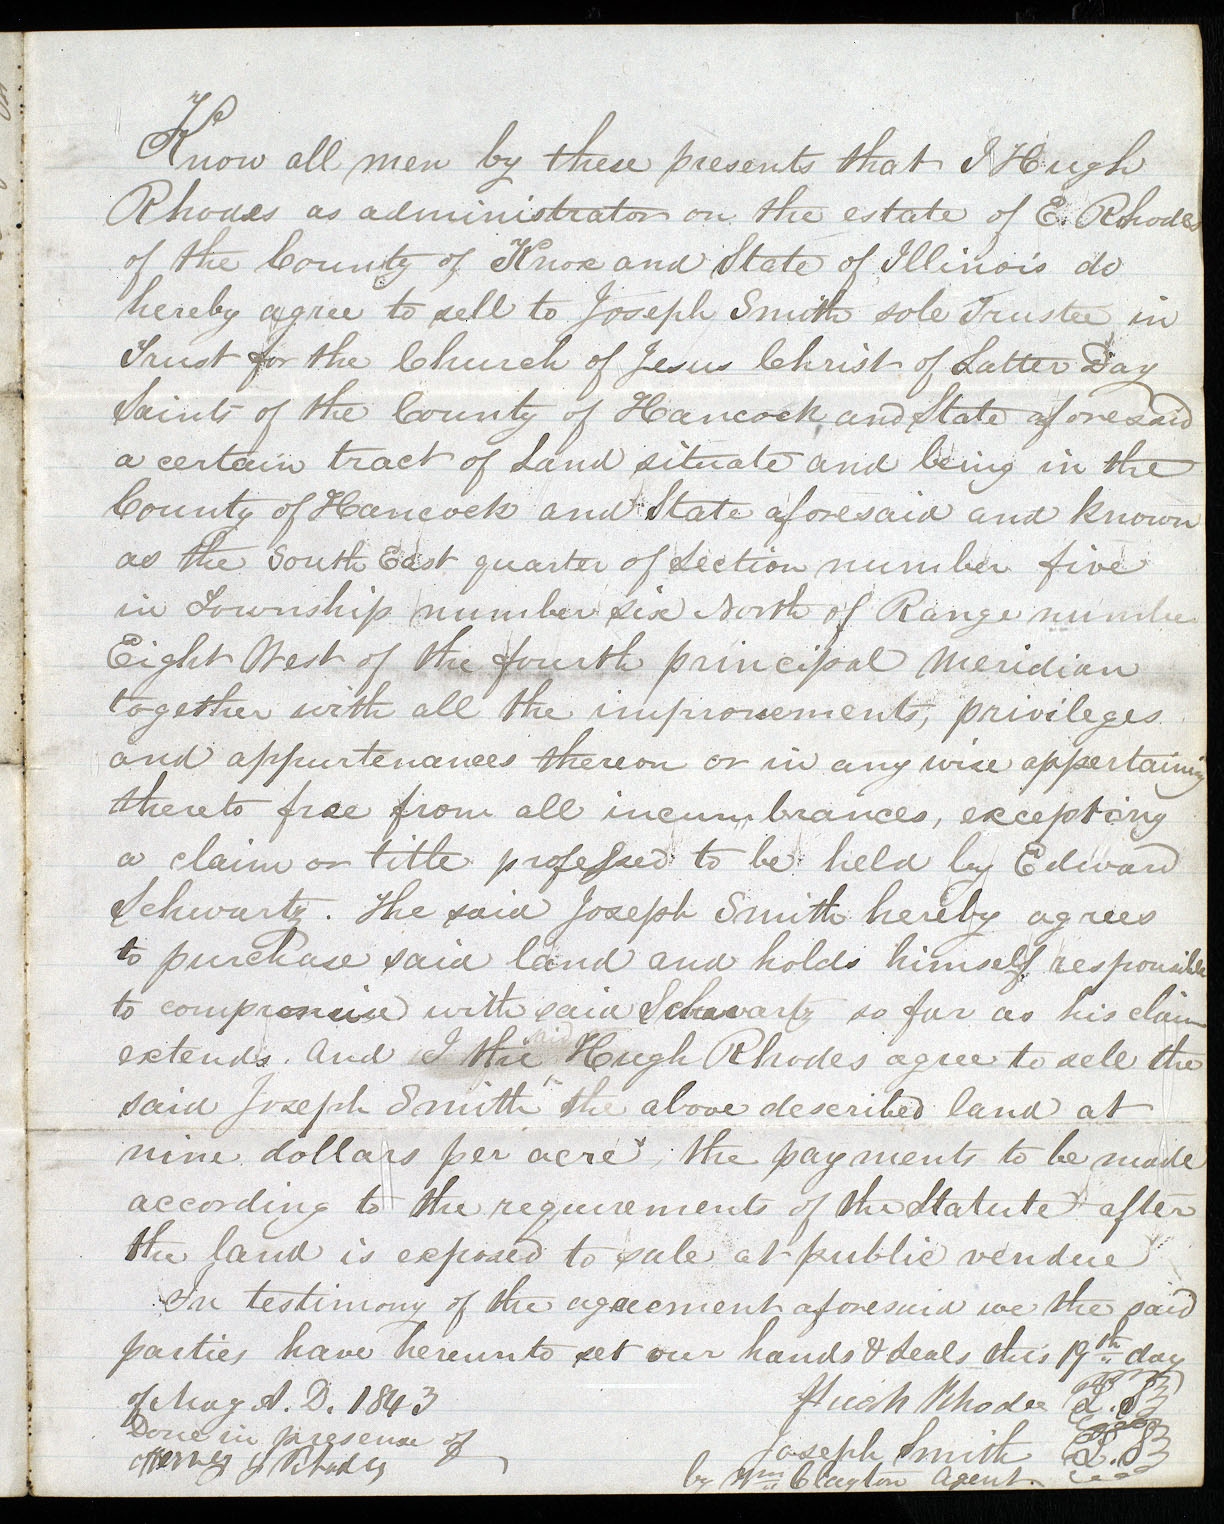 Know all men by these presents that I Hugh
Rhodes as administrator on the estate of E. Rhodes
of the County of Knox and State of Illinois do
hereby agree to sell to Joseph Smith sole Trustee in
Trust for the Church of Jesus Christ of Latter Day
Saints of the County of Hancock and State aforesaid
a certain tract of Land situate and being in the
County of Hancock and State aforesaid and known
as the South East quarter of Section number five
in Township number six North of Range number
Eight West of the fourth principal Meridian
together with all the improvements, privileges
and appurtenances thereon or in any wise appertaining
thereto free from all incumbrances, excepting
a claim or title professed to be held by Edward
Schwartz. The said Joseph Smith hereby agrees
to purchase said land and holds himself responsible
to compromise with said Schwartz so far as his claim
extends. And I the said Hugh Rhodes agree to sell the
said Joseph Smith the above described land at
nine dollars per acre, the payments to be made
according to the requirements of the Statute after
the land is exposed to sale at public vendue
In testimony of the agreement aforesaid we the said
parties have hereunto set our hands & Seals this 19th day
of May A. D. 1843 Hugh Rhodes L.S
Done in presence of Joseph Smith L.S
Rhodes by Wm Clayton Agent.